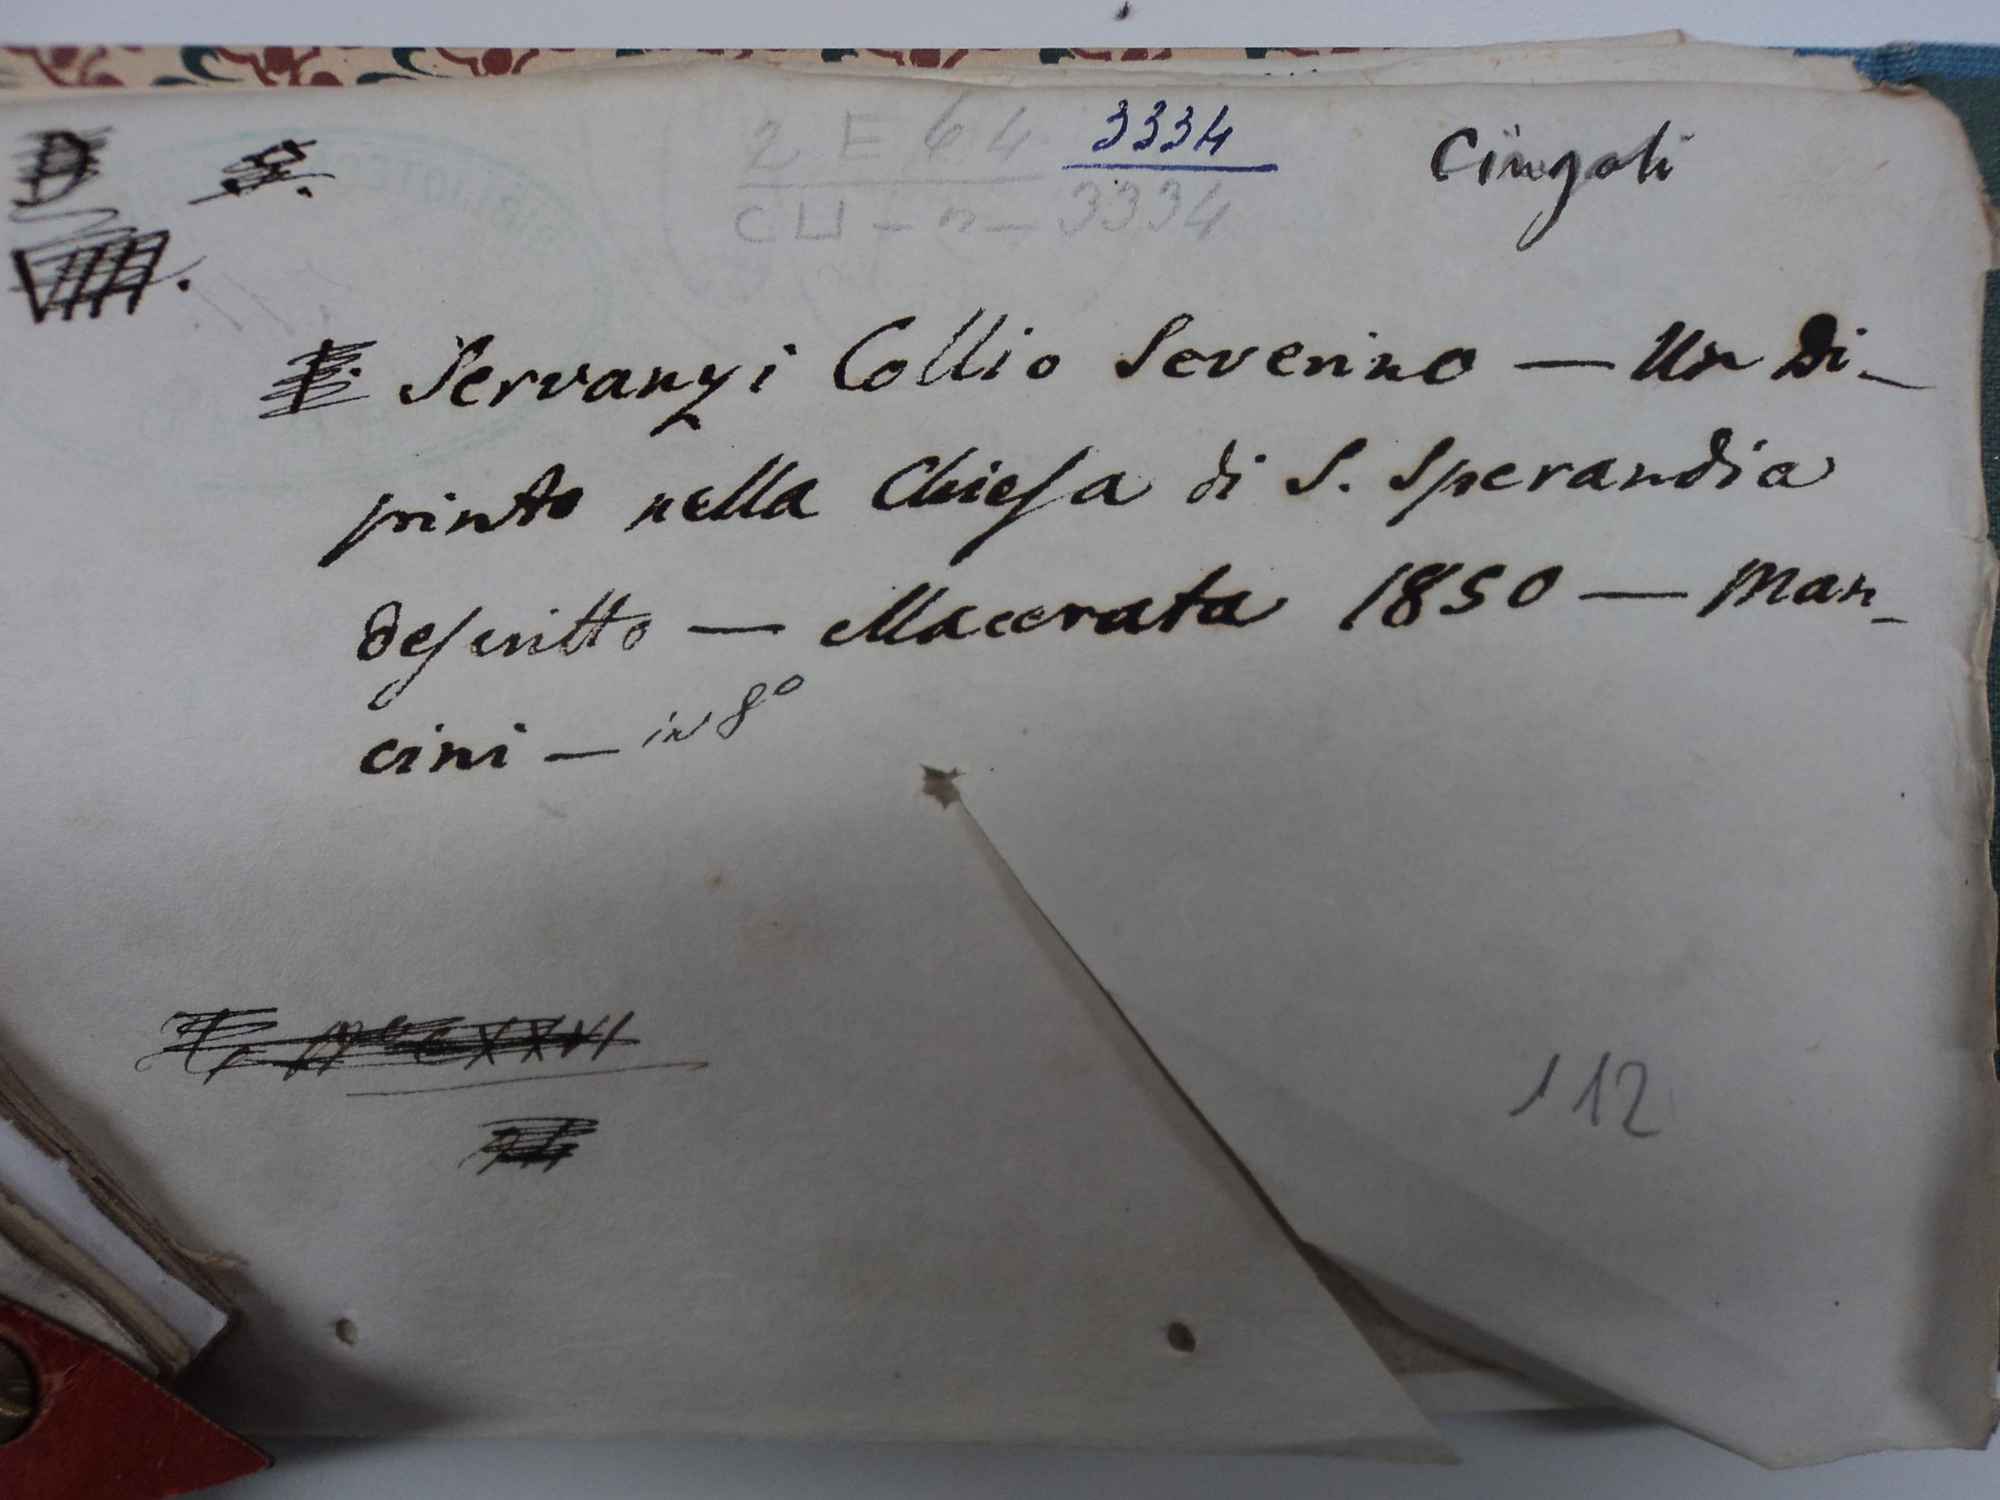 2 E 64 3334 Cingoli
CLI - n - 3334
Servanzi Collio Severino — Un di-
pinto nella Chiesa di S. Sperandia
descritto — Macerata 1850 — Man-
cini — in 8°
112